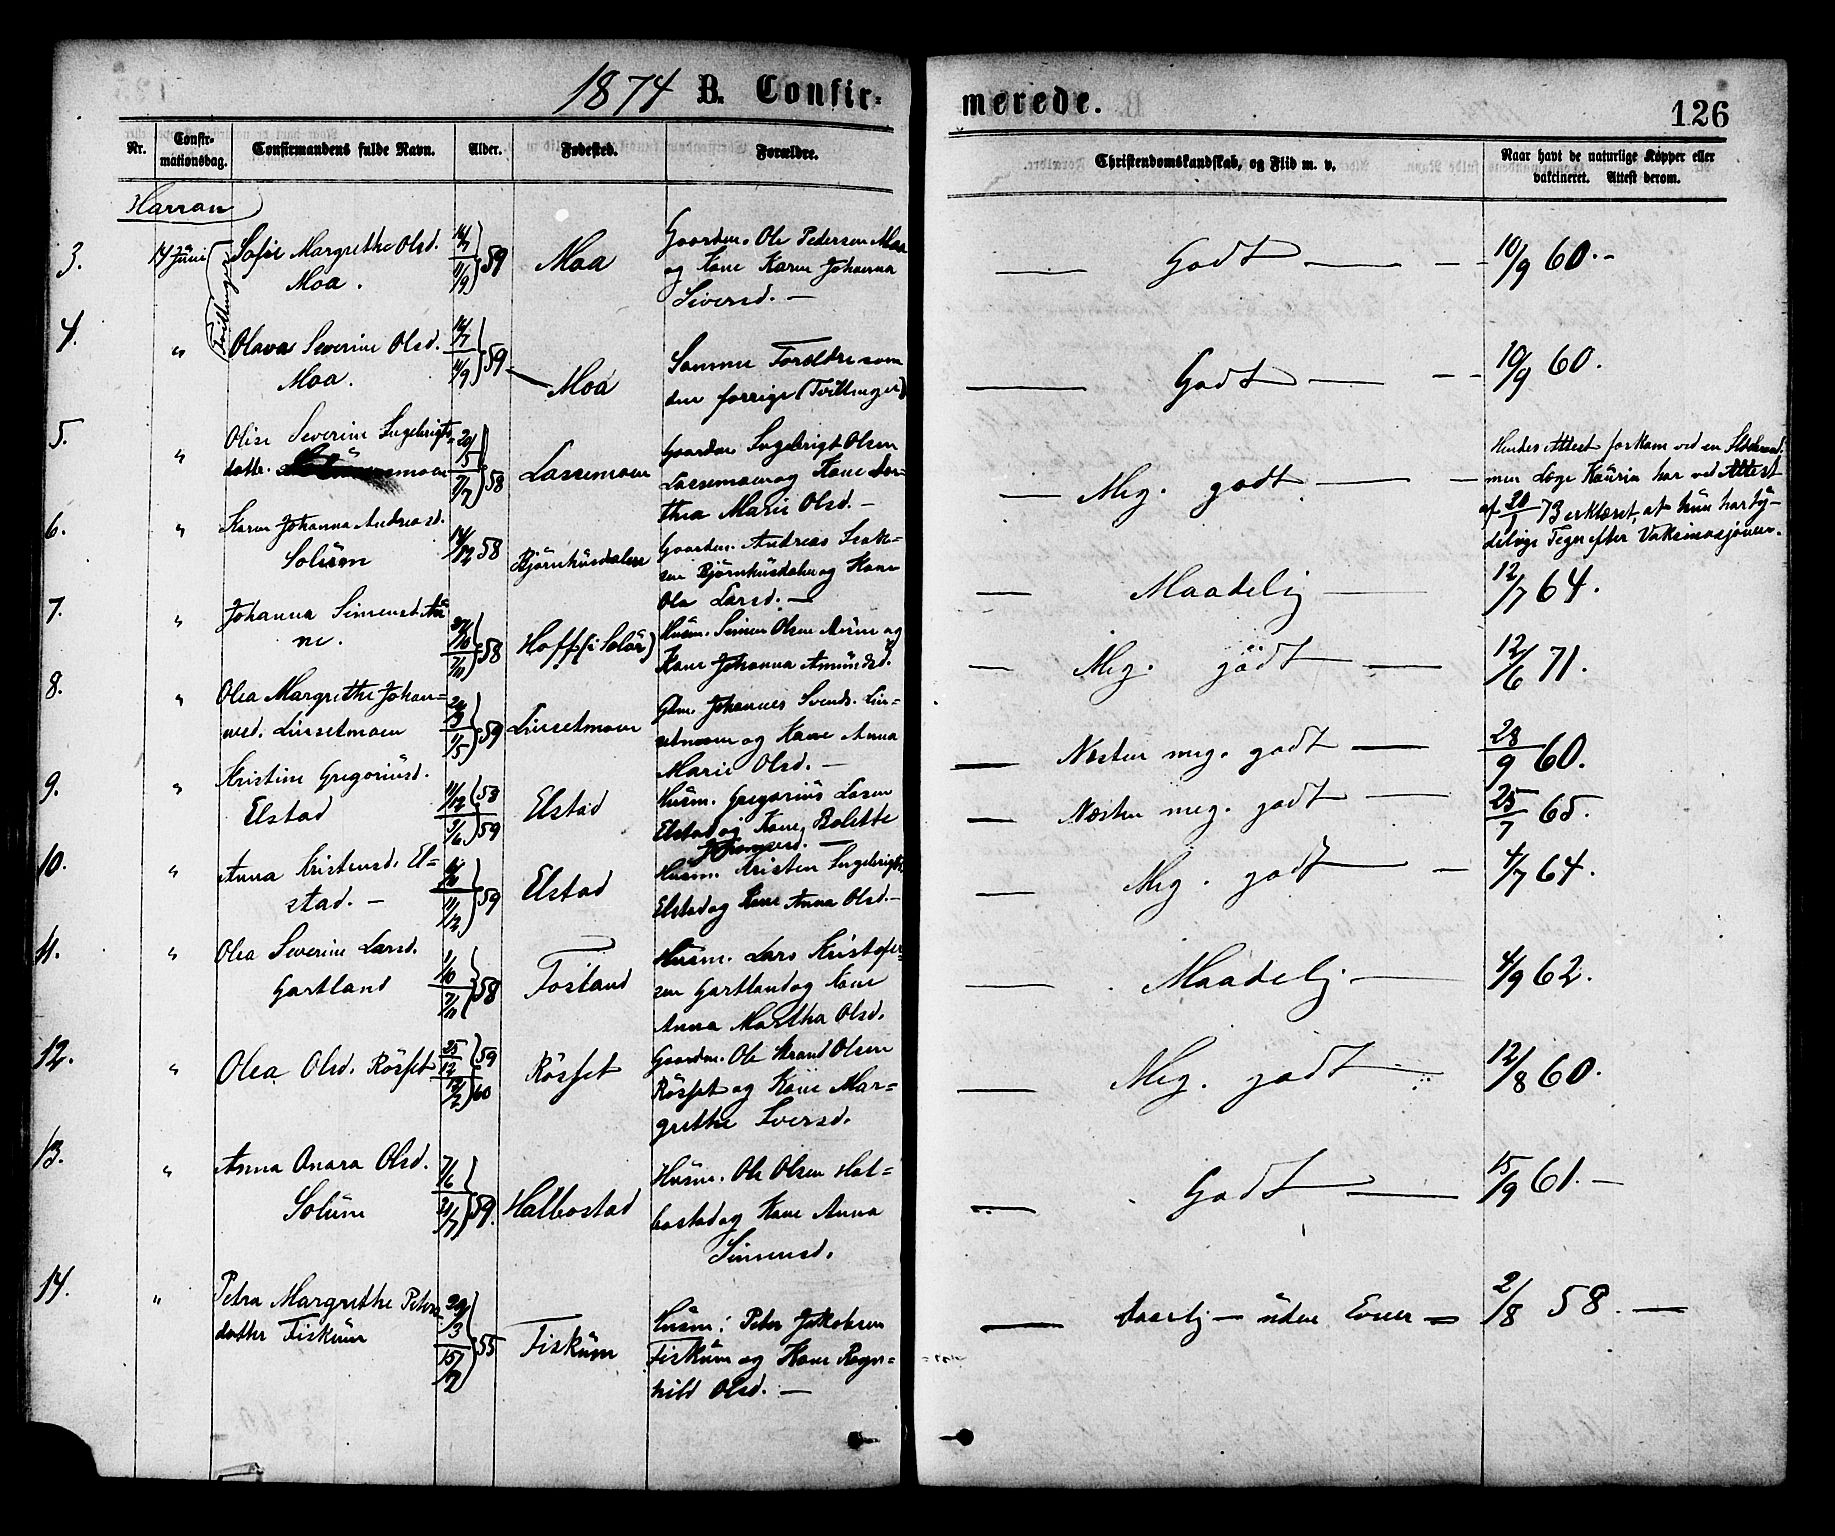 1874 B. Confir-
merede.
126
Nr.
Confir-
mationsdag.
Confirmandens fulde Navn.
Alder.
Fødested.
Forældre.
Christendomskundskab, og Flid m. v.
Naar havt de naturlige Kopper eller
vaktineret. Attest derom.
Harran
3. 14 Juni Sofie Margrethe Olsd.
Moa.
Tvillinger
59
Moa
Gaardm. Ole Pedersen Moa
og Kone Karen Johanna
Siversd. —
— Godt —
10/9 60. -
4. " Olava Severine Olsd.
Moa.
59
Moa
Samme Forældre som
den forrige (Tvillinger)
— Godt —
10/9 60.
5. " Olise Severine Ingebrigts-
datter moen
20/5 7/7 58
Lassemoen
Gaardm. Ingebrigt Olsen
Lassemoen og Kone Dor-
thea Marie Olsd. —
— Meg. godt —
Hendes Attest forkom ved en
men Læge Kaurin har ved Attest
af 20/1 73 erklæret, at hun har ty-
delige Tegn efter Vaksinasjonen.
6. " Karen Johanna Andreasd.
Solüm
14/12 58
Bjørnhusdalen
Gaardm. Andreas Isak-
sen Bjørnhusdalen og Kone
Ola Larsd. —
— Maadelig —
12/7 64.
7. " Johanna Simensd. Aü
ne.
58
Hoff (i Solør)
Husm. Simen Olsen Aüne og
Kone Johanna Amündsd.
— Meg. godt —
12/6 71.
8. " Olea Margrethe Johan-
nesd. Lussetmoen
59
Lussetmoen
Gdm. Johannes Svends. Lus-
setmoen og Kone Anna
Marie Olsd. —
Næsten meg. godt —
28/9 60.
9. " Kristine Gregoriüsd.
Elstad
11/12 58
9/6 59
Elstad
Husm. Gregoriüs Larsen
Elstad og Kone, Bolette
—
— Næsten meg. godt —
25/7 65.
10. " Anna Kristensd. El-
stad. -
59
Elstad
Husm. Kristen Ingebrigts.
Elstad og Kone Anna Olsd. -
— Meg. godt —
4/7 64.
11. " Olea Severine Larsd.
Gartland
1/10 7/11 58
Fosland
Husm. Lars Kristofer-
sen Gartland og Kone
Anna Martha Olsd.
— Maadelig —
4/9 62.
12. " Olea Olsd. Røsset
25/12 59
12/2 60
Røsset
Gaardm. Ole Strand Olsen
Røsset og Kone Mar-
grethe Iversd.
— Meg. godt —
12/8 60.
13. " Anna Onara Olsd.
Solüm
7/6 59.
Halbostad
Husm. Ole Olsen Hal-
bostad og Kone Anna
Simensd.
— Godt —
15/9 61. —
14. " Petra Margrethe Peters-
datter Fiskum
15/7 55
Fiskum
Husm. Peter Jakobsen
Fiskum og Kone Ragn-
hild Olsd. —
— daarlig — uden Evner —
2/8 58. —